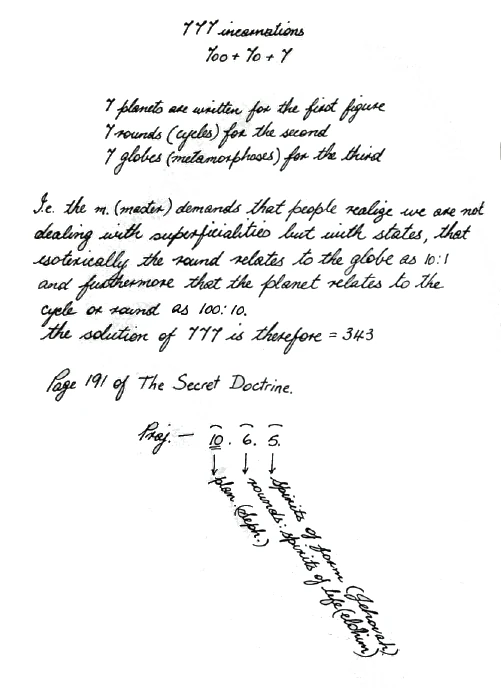 777 incarnations
700 + 70 + 7
7 planets are written for the first figure
7 rounds (cycles) for the second
7 globes (metamorphoses) for the third
I.e. the m. (master) demands that people realize we are not
dealing with superficialities but with states, that
esoterically the round relates to the globe as 10:1
and furthermore that the planet relates to the
cycle or round as 100:10.
the solution of 777 is therefore = 343
Page 191 of The Secret Doctrine.
Praj. — 10. 6. 5.
plan. (Seph.)
rounds: spirits of life (elohim)
spirits of form (Jehovah)